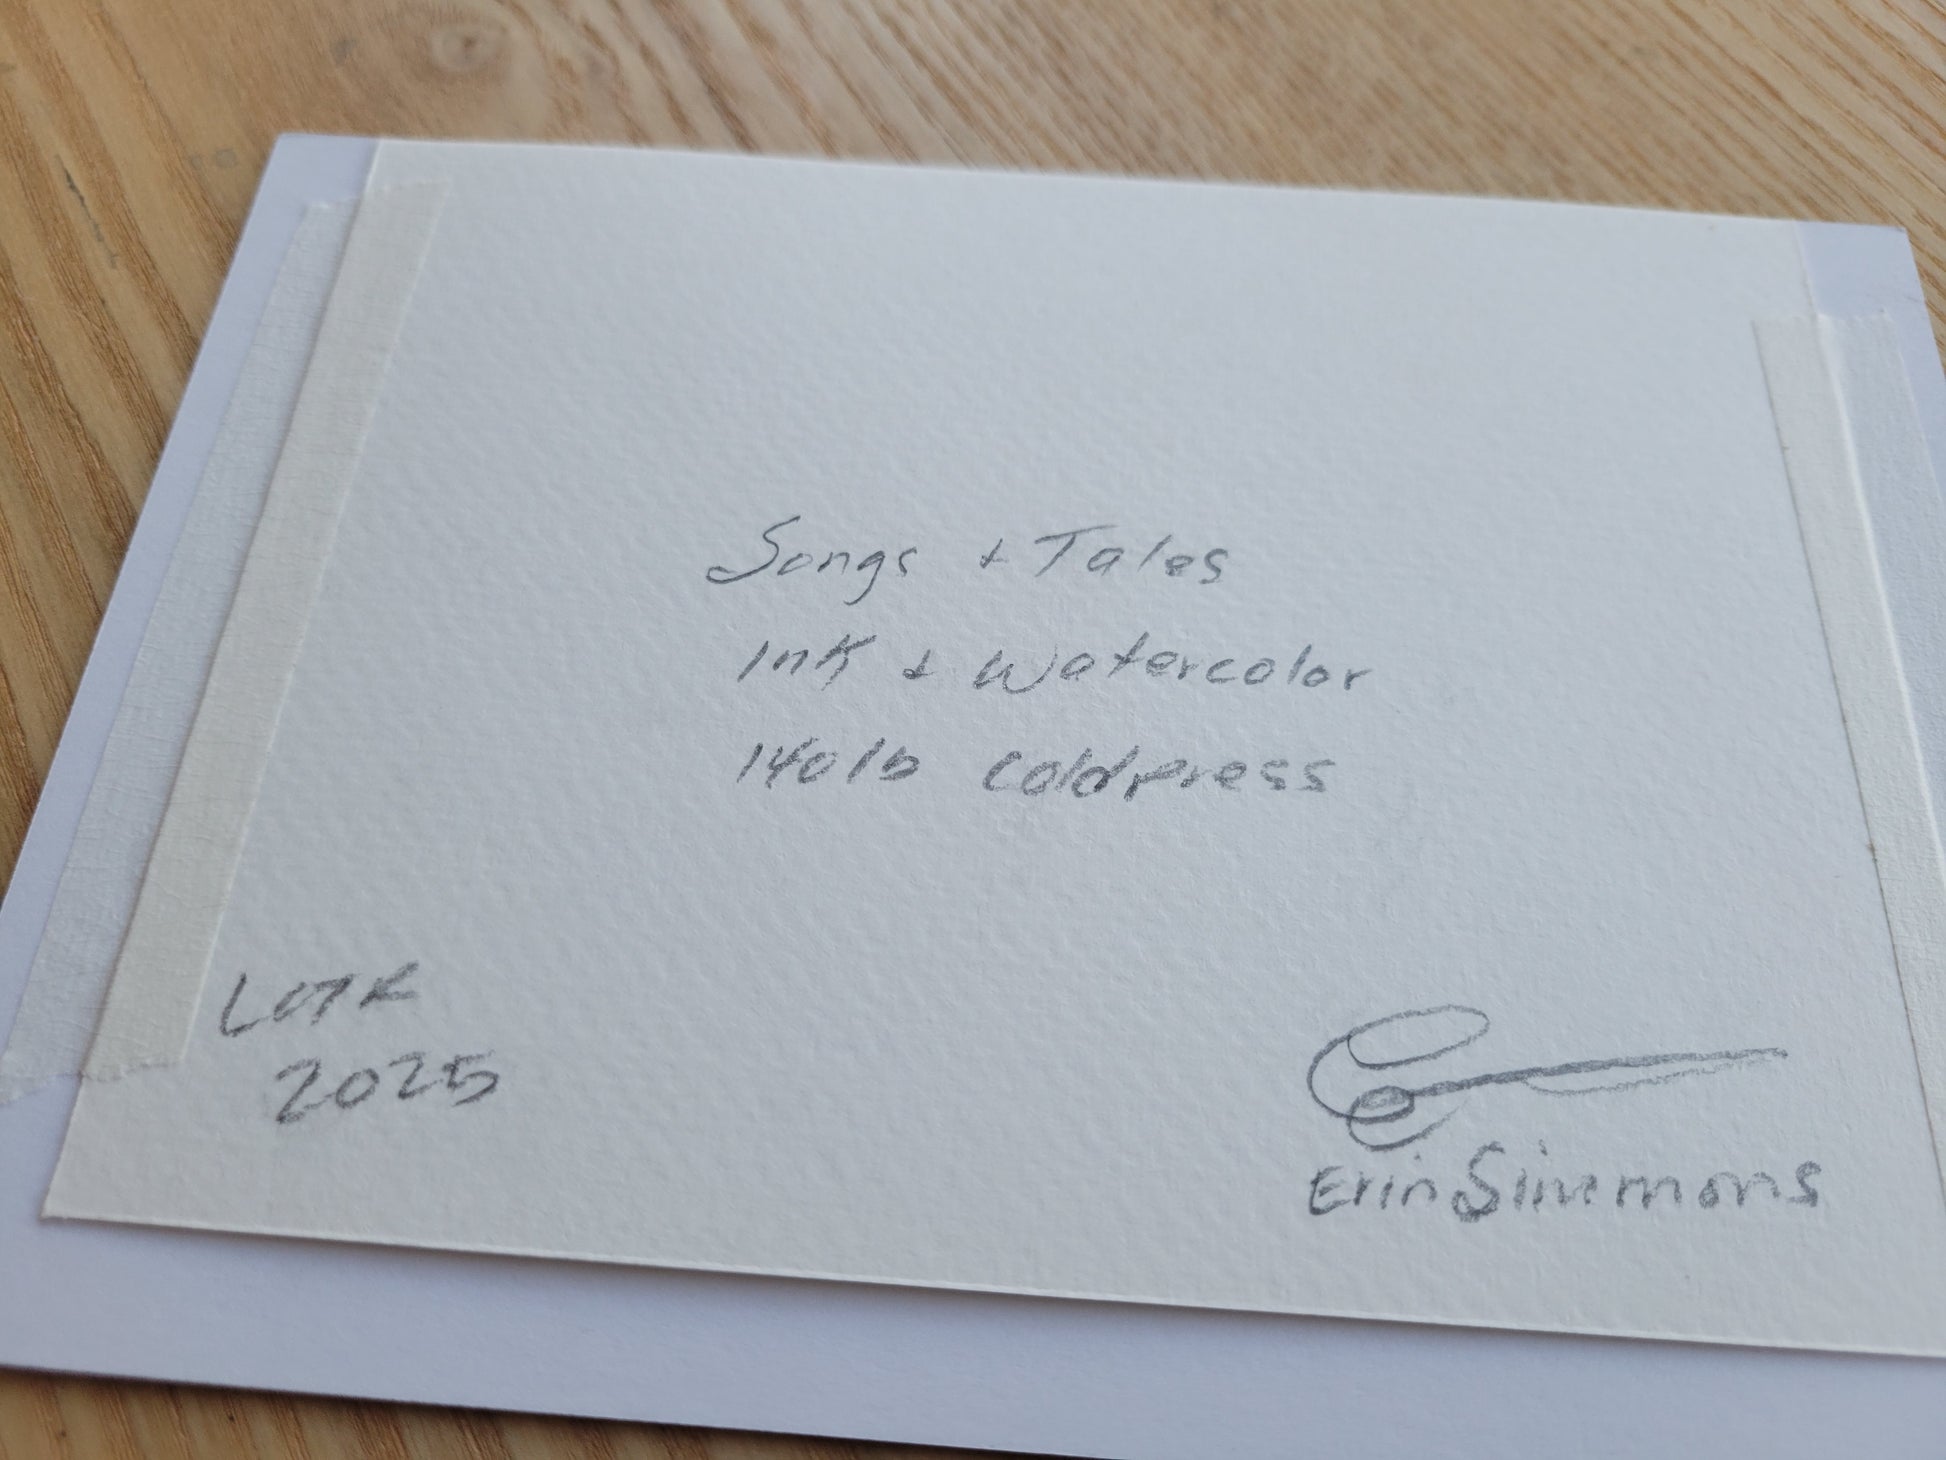 Songs + Tales
Ink + Watercolor
140lb coldpress
LOTR
2025
Erin Simmons